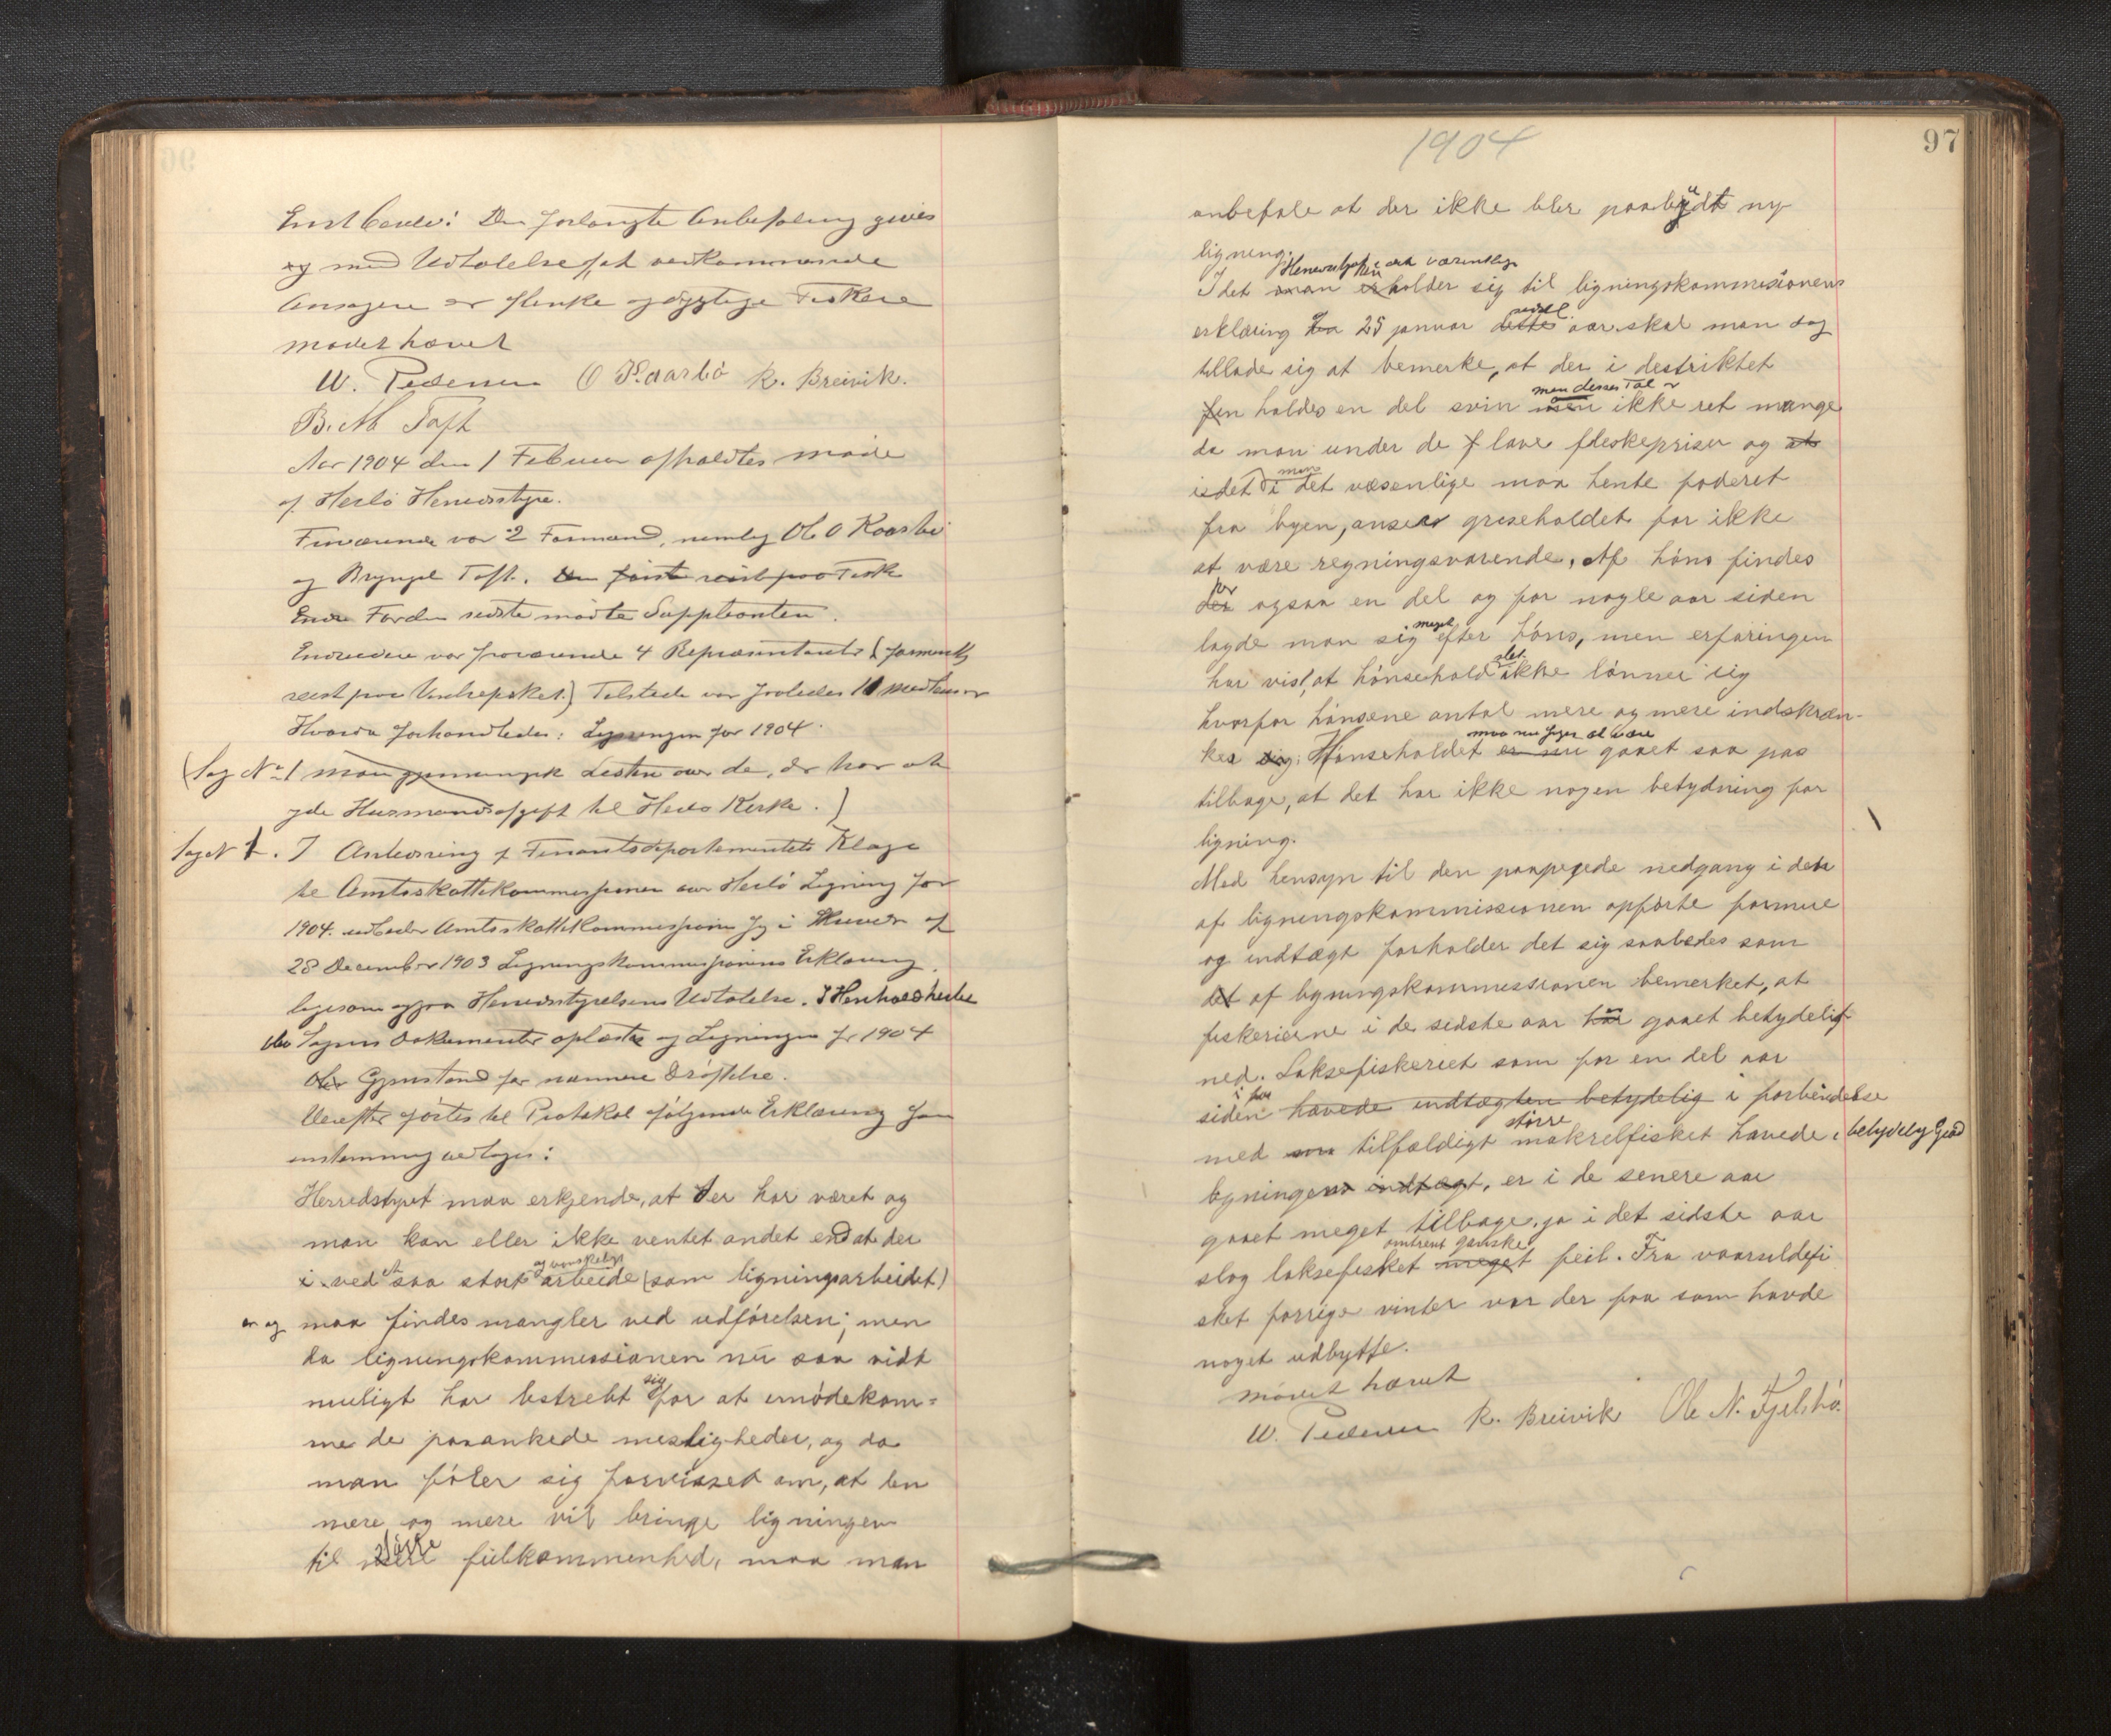 Enst besl.: Den forlangte Anbefaling gives
og med Udtalelse af, at vedkommende
Ansøgere er flinke og dygtige Fiskere
mødet hævet
W. Pedersen O Kaarbø R. Breivik.
B. M Toft
Aar 1904 den 1 Februar afholdtes møde
af Herlø Herredsstyre.
Fraværende var 2 Formænd, nemlig Ole O Kaarbø
og Bryngel Toft. Den første reist paa Fisk
Endre Fordin sidste mødte Suppleanten.
Endvidere var fraværende 4 Repræsentanter (formentl
reist paa Vaarfisket.) Tilstede var saaledes 11 medlemmer
Hvorda forhandledes: Ligningen for 1904.
(Sag No 1 man gjennemgik Listen over de, der har at
yde Husmandsafgift til Herlø Kirke.)
Sag N 1. I Anledning af Finantsdepartementets Klage
til Amtsskattekommissionen over Herlø Ligning for
1904. udbeder Amtsskattekommissionen sig i Skrivelse af
28 December 1903 Ligningskommissionens Erklæring
ligesom ogsaa Herredsstyrelsens Udtalelse. I Henhold hertil
blev Sagens Dokumenter oplæste og Ligningen for 1904
blev Gjenstand for nærmere Drøftelse.
Derefter førtes til Protokol følgende Erklæring som
enstemmig vedtoges:
Herredstyret maa erkjende, at der har været og
man kan eller ikke ventet andet end at der
og vanskeligt
i ved et saa stort arbeide (som ligningsarbeidet)
er og maa findes mangler ved udførelsen; men
da ligningskommissionen nu saa vidt
muligt har bestrebt sig for at imødekom=
me de paaankede misligheder, og da
man føler sig forvisset om, at den
mere og mere vil bringe ligningen
til mere større fulkommenhed, maa man
1904
97
anbefale at der ikke blir paabudt ny
ligning.
Herredstyret i det væsentlige
Idet man henholder sig til ligningskommisionens
erklæring fra 25 januar dettes aar skal man dog
tillade sig at bemerke, at der i destriktet
men disses Tal er
fin holdes en del svin men ikke ret mange
da man under de f lave fleskepriser og at
idet man i det væsenlige maa hente foderet
fra byen, anser griseholdet for ikke
at være regningsvarende. Af høns findes
der ogsaa en del og for nogle aar siden
lagde man sig meget efter høns, men erfaringen
har vist, at hønsehold slet ikke lønner sig
hvorfor hønsene antal mere og mere indskræn-
maa nu siges at være
kes sig. Hønseholdet er nu gaaet saa pas
tilbage, at det har ikke nogen betydning for
ligning.
Med hensyn til den paapegede nedgang i den
af ligningskommissionen opførte formue
og indtægt forholder det sig saaledes som
det af ligningskommissionen bemerket, at
fiskerierne i de sidste aar har gaaet betydelig
ned. Laksefiskeriet som for en del aar
siden hævede indtægten betydelig i forbindelse
større
med en tilfældigt makrelfisket hævede i betydelig Grad
ligningens indtægt, er i de senere aar
gaaet meget tilbage, ja i det sidste aar
omtrent ganske
slog laksefisket meget feil. Fra vaarsildefi
sket forrige vinter var der faa som havde
noget udbytte.
mødet hævet
W. Pedersen R. Breivik Ole N. Fjelsbø.